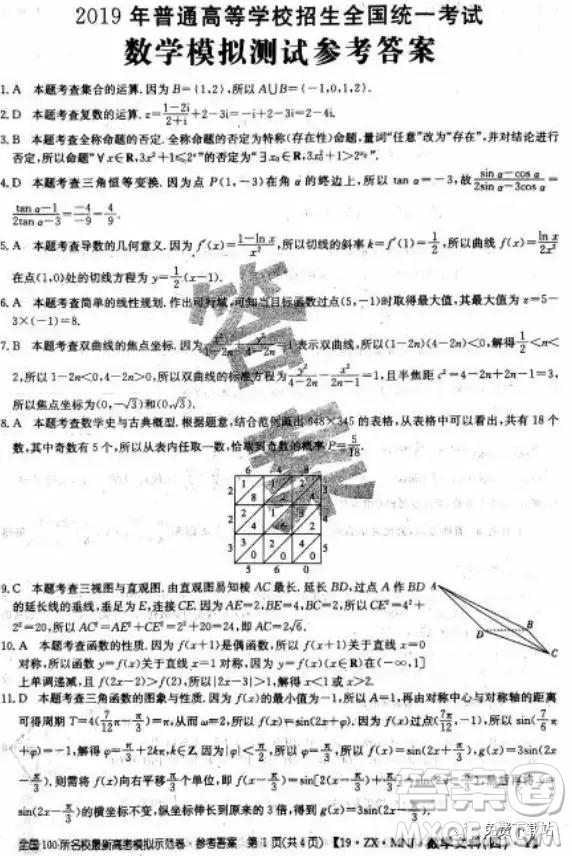 2019年普通高等学校招生全国统一考试
数学模拟测试参考答案
1. A 本题考查集合的运算. 因为 B={1,2},所以 A∪B={-1,0,1,2}.
2. D 本题考查复数的运算. z=(1-2i)/(2+i)+2-3i=-i+2-3i=2-4i.
3. B 本题考查全称命题的否定. 全称命题的否定为特称(存在性)命题,量词“任意”改为“存在”,并对结论进行
否定,所以命题“∀x∈R,3x²+1≤2ˣ”的否定为“∃x₀∈R,3x₀²+1>2^x₀”.
4. D 本题考查三角恒等变换. 因为点 P(1,-3)在角 α 的终边上,所以 tan α=-3,故(sin α-cos α)/(2sin α-3cos α)=
(tan α-1)/(2tan α-3)=(-4)/(-9)=4/9.
5. A 本题考查导数的几何意义. 因为 f′(x)=(1-ln x)/x²,所以切线的斜率 k=f′(1)=1/2,所以曲线 f(x)=ln x/2x
在点(1,0)处的切线方程为 y=1/2(x-1).
6. A 本题考查简单的线性规划. 作出可行域,可知当目标函数过点(5,-1)时取得最大值,其最大值为 z=5-
3×(-1)=8.
7. B 本题考查双曲线的焦点坐标. 因为x²/(1-2n)+y²/(4-2n)=1表示双曲线,所以(1-2n)(4-2n)<0,解得1/2<n<
2,所以1-2n<0,4-2n>0,所以双曲线的标准方程为y²/(4-2n)-x²/(2n-1)=1,且半焦距 c²=4-2n+2n-1=3,
所以焦点坐标为(0,-√3)和(0,√3).
8. A 本题考查数学史与古典概型. 根据题意,结合范例画出648×345的表格,从表格中可以看出,共有18个
数,其中奇数有5个,所以从表内任取一数,恰取到奇数的概率 P=5/18.
6 4 8
9. C 本题考查三视图与直观图. 由直观图易知棱 AC 最长. 延长 BD,过点 A 作 BD
的延长线的垂线,垂足为 E,连接 CE. 因为 AE=2,BE=4,BC=2,所以 CE²=4²+
2²=20,所以 AC²=AE²+CE²=2²+20=24,即 AC=2√6.
A
D
B
C
10. A 本题考查函数的性质. 因为 f(x+1)是偶函数,所以 f(x+1)关于直线 x=0
对称,所以函数 y=f(x)关于直线 x=1 对称,因为 y=f(x)(x∈R)在(-∞,1]
上单调递减,且 f(2x-2)>f(2),所以|2x-3|>1,解得 x<1 或 x>2.
11. D 本题考查三角函数的图象与性质. 因为 f(x)的最小值为-1,所以 A=1,再由对称中心与对称轴的距离
可得周期 T=4(7/12π-π/3)=π,从而 ω=2,所以 f(x)=sin(2x+φ). 因为 f(x)过点(7π/12,-1),所以 sin(7/6π
+φ)=-1,解得 φ=π/3+2kπ,k∈Z. 因为|φ|<π/2,所以 φ=π/3,所以 f(x)=sin(2x+π/3),g(x)=3sin(x-
π/3),则需将 f(x)向右平移π/3个单位,即 f(x-π/3)=sin[2(x-π/3)+π/3]=sin(2x-π/3),然后再将 y=
sin(2x-π/3)的横坐标不变,纵坐标伸长到原来的3倍,得到 g(x)=3sin
全国100所名校最新高考模拟示范卷·参考答案 第1页(共4页) 【19·ZX·MNJ 数学文科(四)
答案
免费下载站